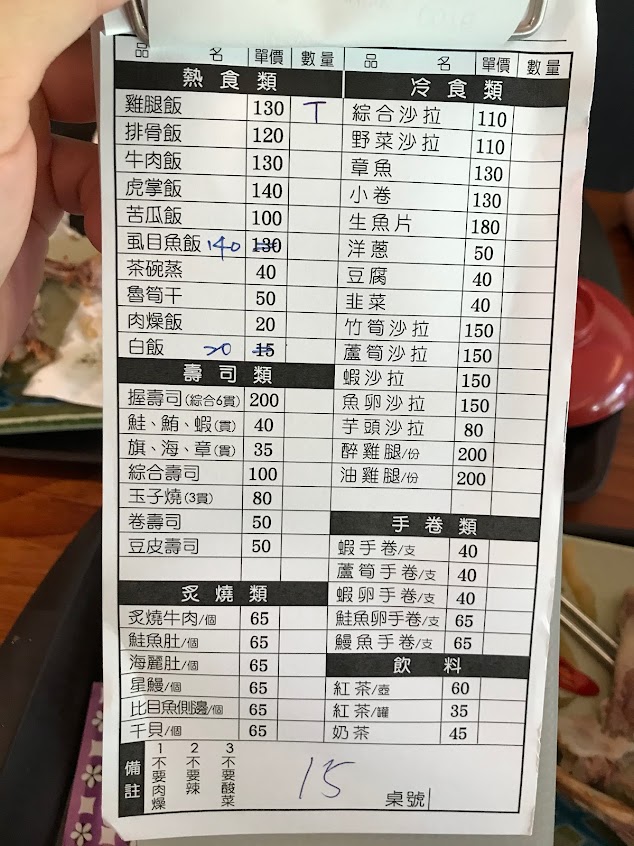 品 名 單價 數量
熱食類
雞腿飯 130 T
排骨飯 120
牛肉飯 130
虎掌飯 140
苦瓜飯 100
虱目魚飯 140 130
茶碗蒸 40
魯筍干 50
肉燥飯 20
白飯 20 15
壽司類
握壽司(綜合6貫) 200
鮭、鮪、蝦(貫) 40
旗、海、章(貫) 35
綜合壽司 100
玉子燒(3貫) 80
卷壽司 50
豆皮壽司 50
炙燒類
炙燒牛肉/個 65
鮭魚肚/個 65
海麗肚/個 65
星鰻/個 65
比目魚側邊/個 65
干貝/個 65
品 名 單價 數量
冷食類
綜合沙拉 110
野菜沙拉 110
章魚 130
小卷 130
生魚片 180
洋蔥 50
豆腐 40
韭菜 40
竹筍沙拉 150
蘆筍沙拉 150
蝦沙拉 150
魚卵沙拉 150
芋頭沙拉 80
醉雞腿/份 200
油雞腿/份 200
手卷類
蝦手卷/支 40
蘆筍手卷/支 40
蝦卵手卷/支 40
鮭魚卵手卷/支 65
鰻魚手卷/支 65
飲料
紅茶/壺 60
紅茶/罐 35
奶茶 45
備註
1不要肉燥
2不要辣
3不要酸菜
15
桌號